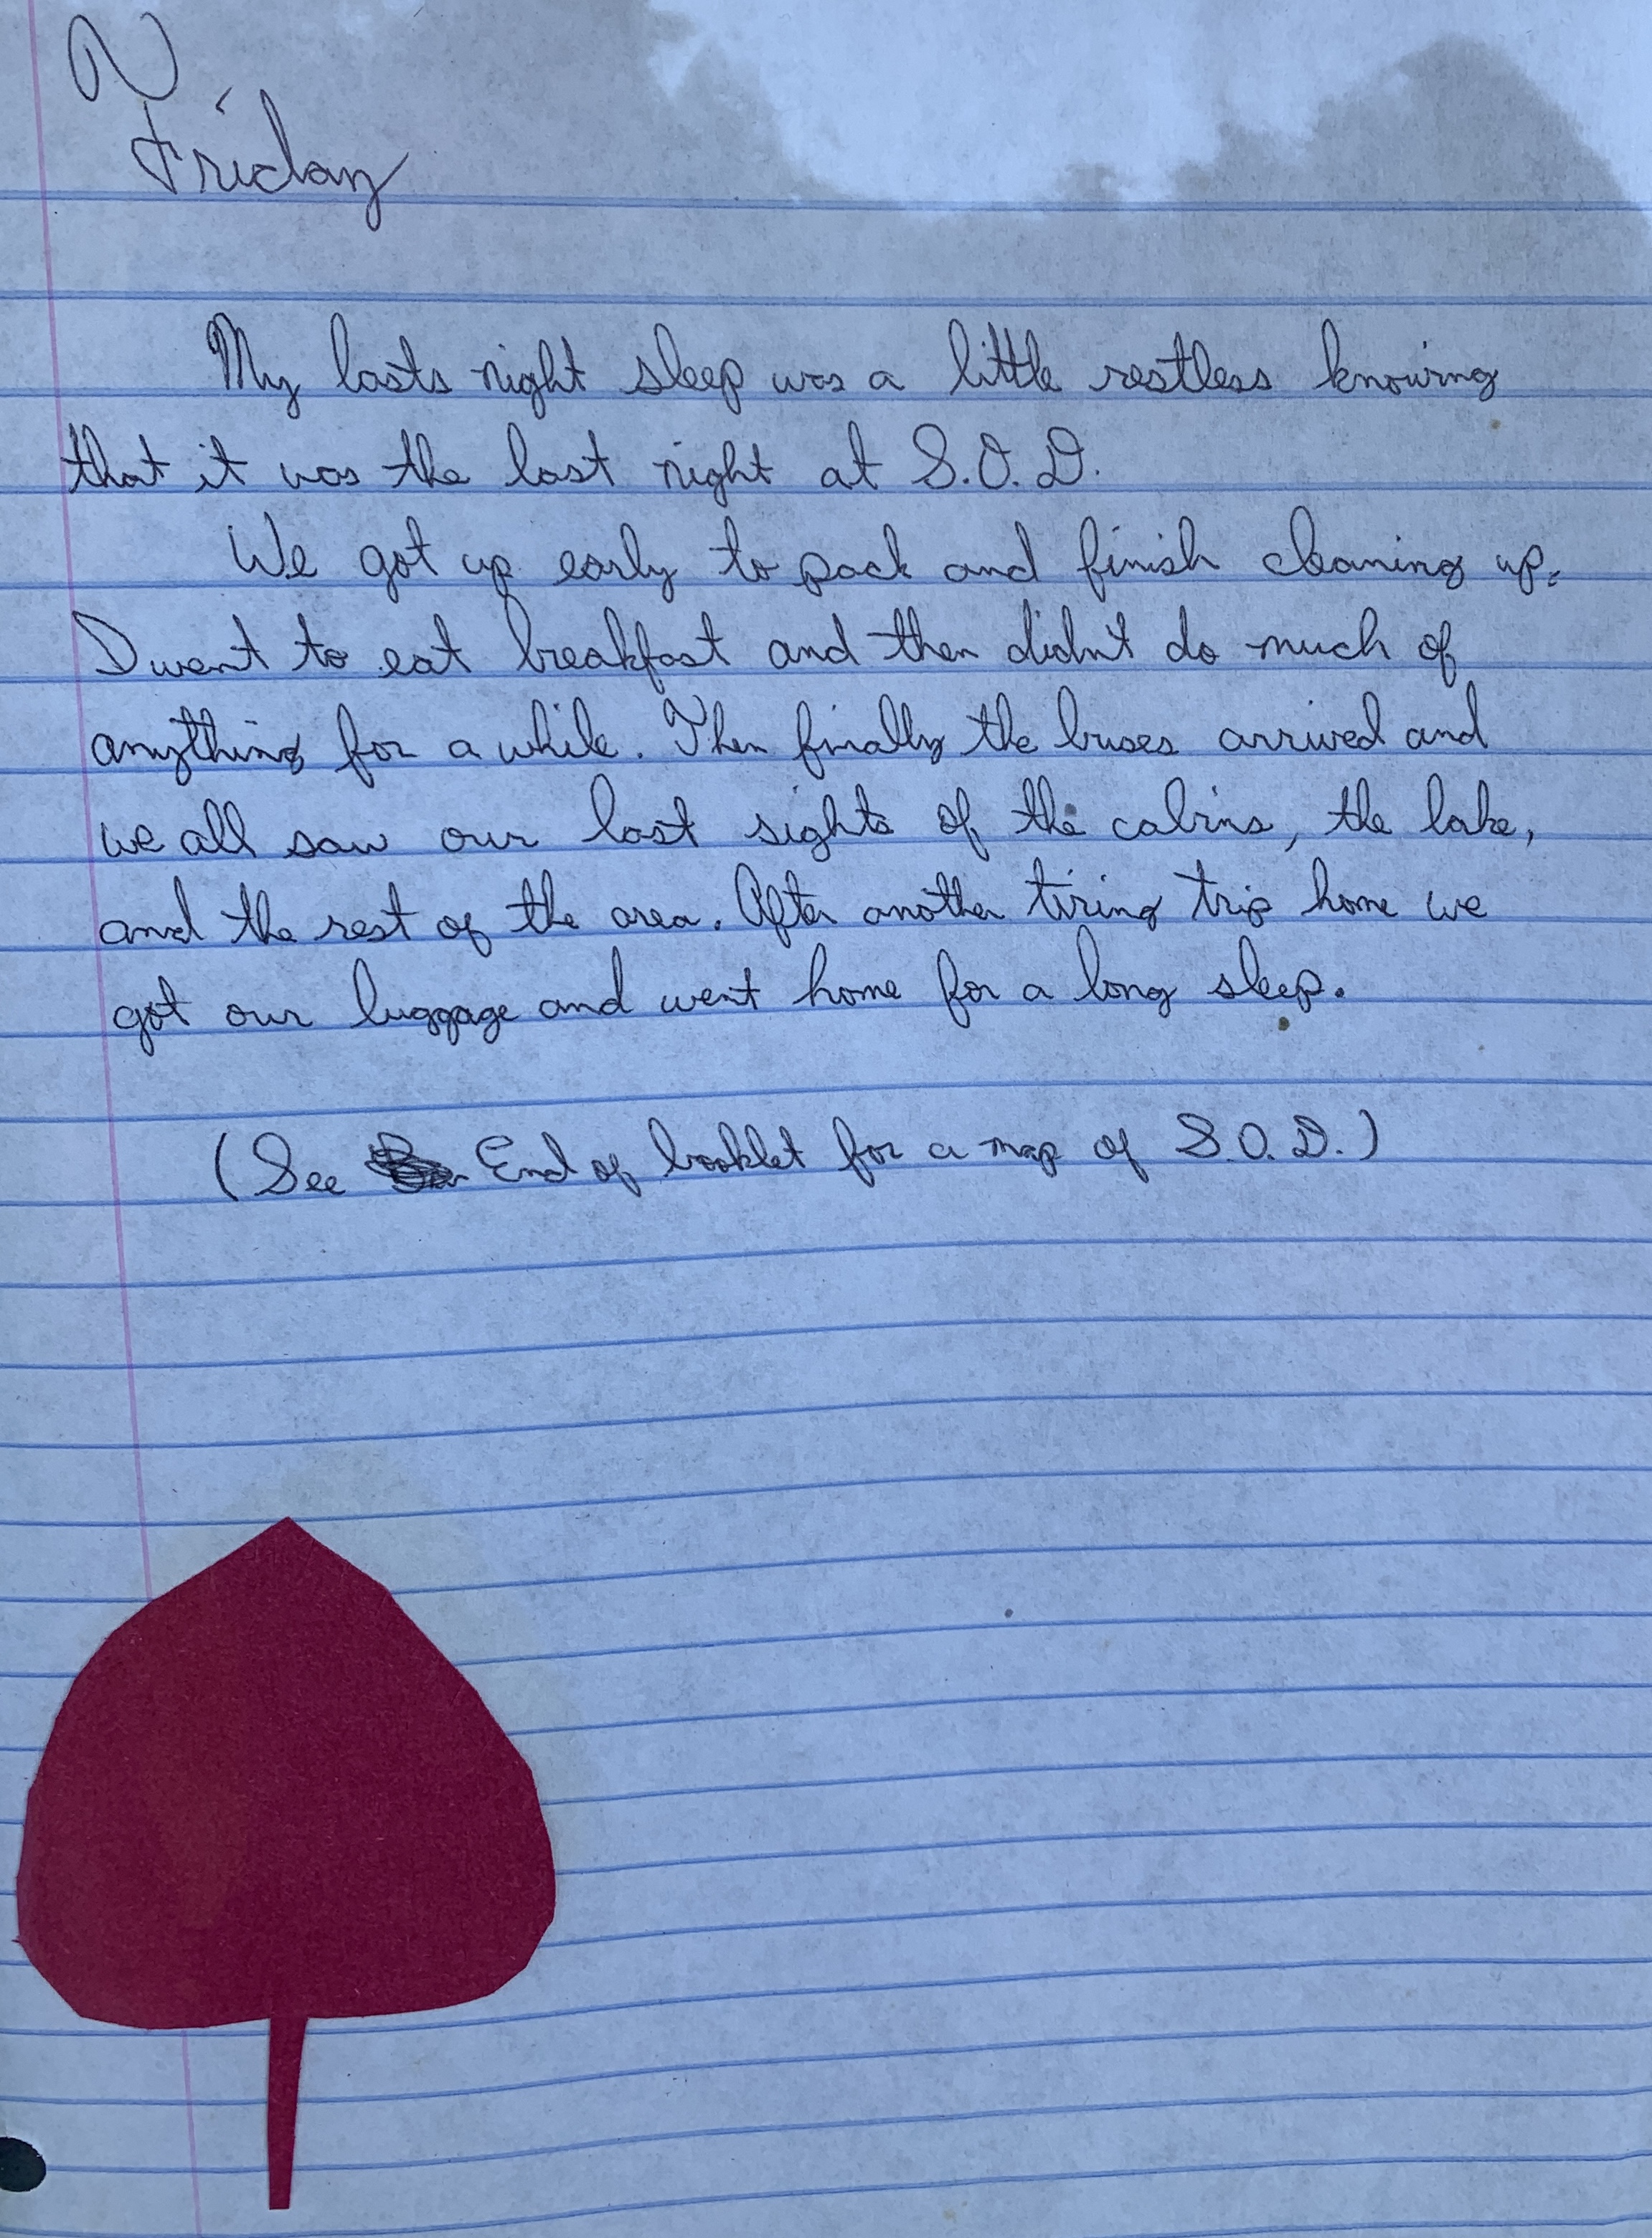 Friday
My lasts night sleep was a little restless knowing
that it was the last night at S.O.D.
We got up early to pack and finish cleaning up.
I went to eat breakfast and then didn't do much of
anything for a while. Then finally the buses arrived and
we all saw our last sights of the cabins, the lake,
and the rest of the area. After another tiring trip home we
got our luggage and went home for a long sleep.
(See End of booklet for a map of S.O.D.)